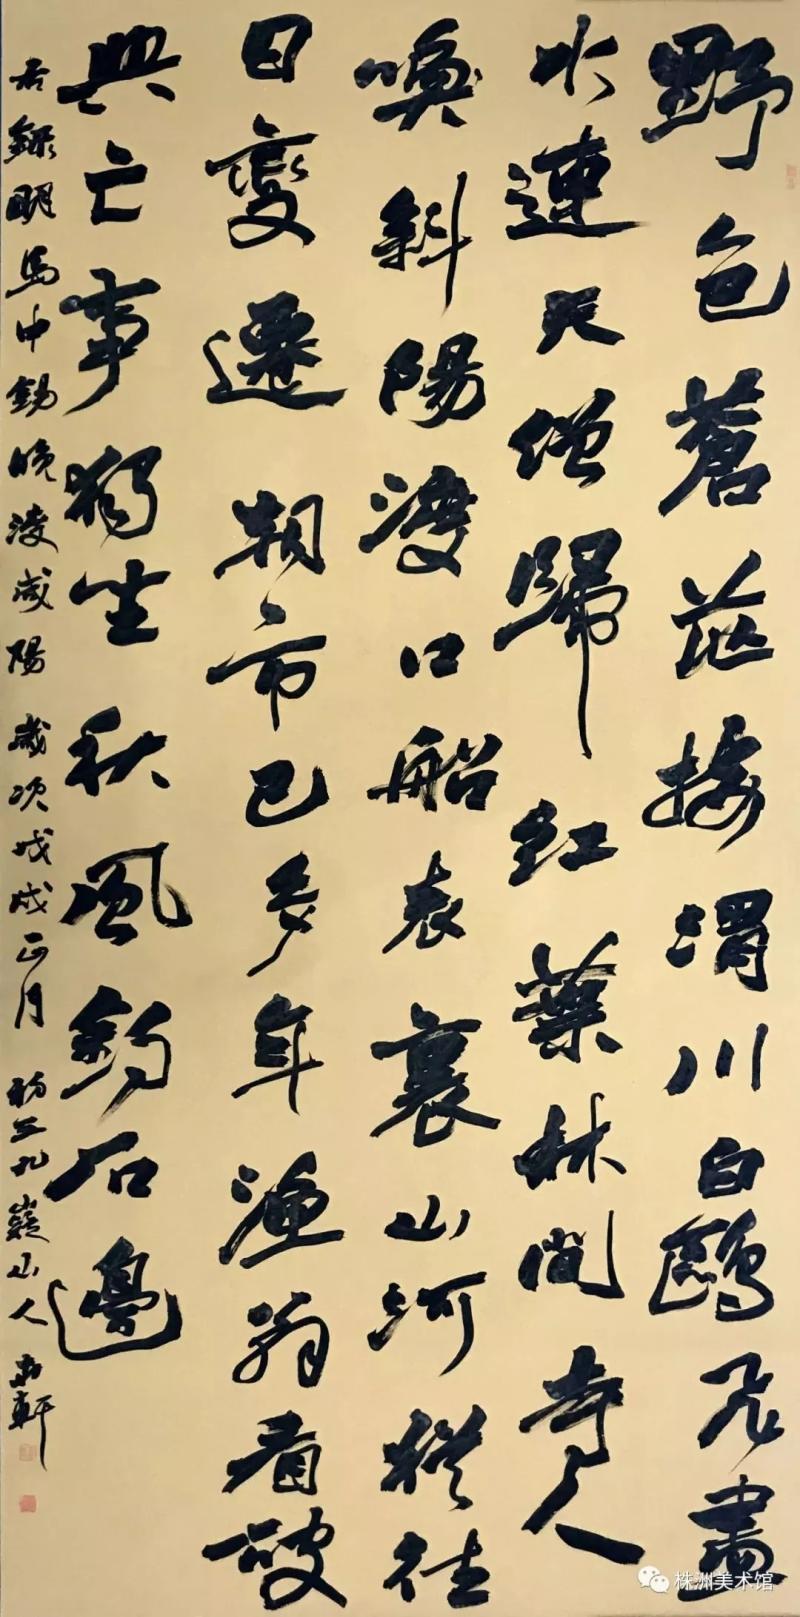 野色蒼茫接渭川白鷗飛盡
水連天僧歸紅葉林間寺人
喚斜陽渡口船表裏山河猶往
日變遷朝市已多年漁翁看破
興亡事獨坐秋風釣石邊
右錄明馬中錫晚渡咸陽歲次戊戌正月九嶷山人軒
株洲美术馆